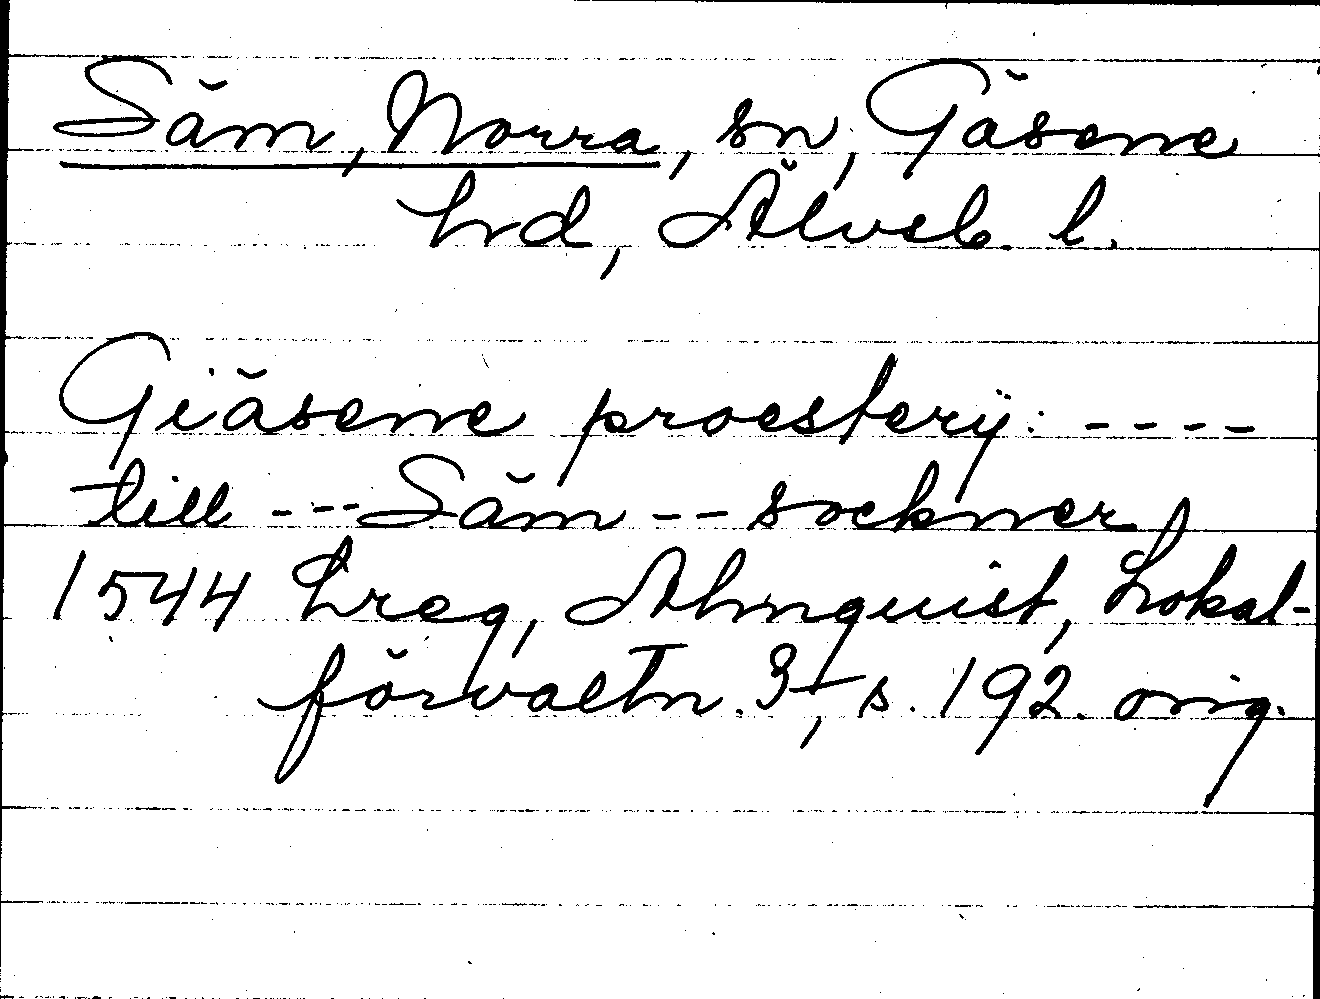 Säm, Norra, sn, Gäsene
hd, Älvsb. l.
Giäsene proesterij: ----
till --- Säm -- sockner
1544 hreg, Almquist, Lokal-
förvaltn. 3, s. 192. orig.